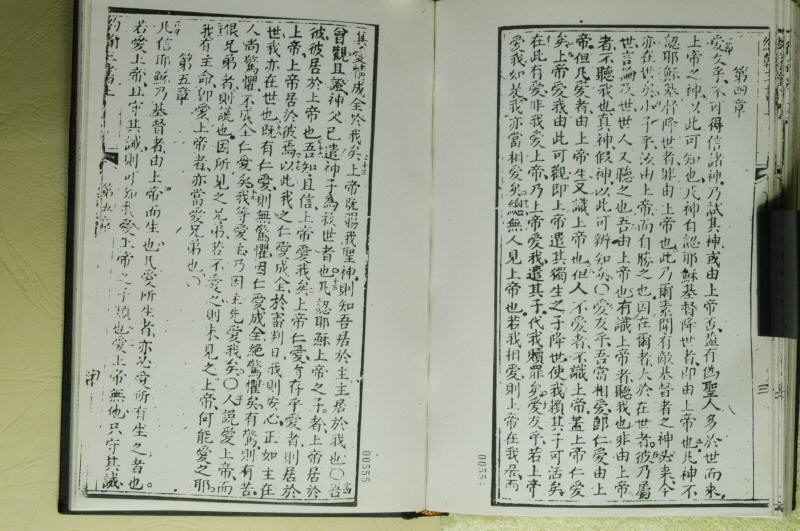 第四章
愛友乎不可得信諸神乃試其神或由上帝否蓋有偽聖人多於世而來
上帝之神以此可知也凡神有認耶穌基督降世者即由上帝也凡神不
認耶穌基督降世者非由上帝也此乃爾素聞有敵基督者之神必來今
亦在世於小子乎汝由上帝而自勝之也因在爾者大於在世者彼乃屬
世言論及世世人又聽之也吾由上帝也有識上帝者聽我也非由上帝
者不聽我也真神假神以此可辨知矣〇愛友乎吾當相愛即仁愛由上
帝但凡愛者由上帝生又識上帝也但人不愛者不識上帝蓋上帝仁愛
矣上帝愛我由此可觀即上帝遣其獨生之子降世使我賴其子可活矣
在此有愛非我愛上帝乃上帝愛我遣其子代我贖罪矣愛友乎若上帝
愛我如是我亦當相愛矣總無人見上帝也若我相愛則上帝在我居而
其愛成全於我矣上帝既賜我聖神則知吾居於主主居於我也〇吾
曾觀且證神父已遣神子為救世者也凡認耶穌上帝之子者上帝居於
彼彼居於上帝也吾知且信上帝愛我矣上帝仁愛有存乎愛者則居於
上帝上帝居於彼焉以此我之仁愛成全於審判日我則安心正如主在
世我亦在世也既有仁愛則無驚懼因仁愛成全絕驚懼矣有驚則有苦
人尚驚懼不成全仁愛矣我等愛主乃因主先愛我矣〇人說愛上帝而
恨兄弟者則謊也因所見之兄弟若不愛之則未見之上帝何能愛之耶
我有主命即愛上帝者亦當愛兄弟也〇
第五章
凡信耶穌乃基督者由上帝而生也凡愛所生者亦必愛所有生之者也
若愛上帝且守其誡則可知我愛上帝之子類也愛上帝無他只守其誡
約翰之書上
第五章
00555